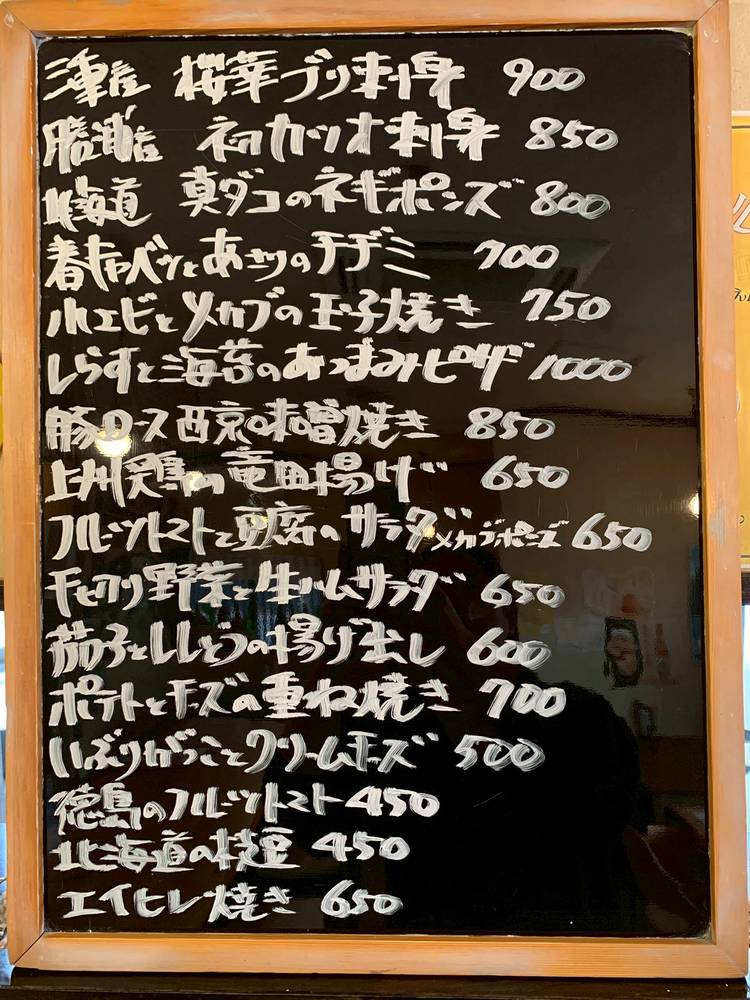 三重産 桜華ブリ刺身 900
勝浦産 初カツオ刺身 850
北海道 真ダコのネギポンズ 800
春キャベツとあさりのチヂミ 700
小エビとメカブの玉子焼き 750
しらすと海苔のおつまみピザ 1000
豚ロース西京味噌焼き 850
上州鶏の竜田揚げ 650
フルーツトマトと豆腐のサラダメカブポンズ 650
千切り野菜と生ハムサラダ 650
茄子とししとうの揚げ出し 600
ポテトとチーズの重ね焼き 700
いぶりがっことクリームチーズ 500
徳島のフルーツトマト 450
北海道の枝豆 450
エイヒレ焼き 650